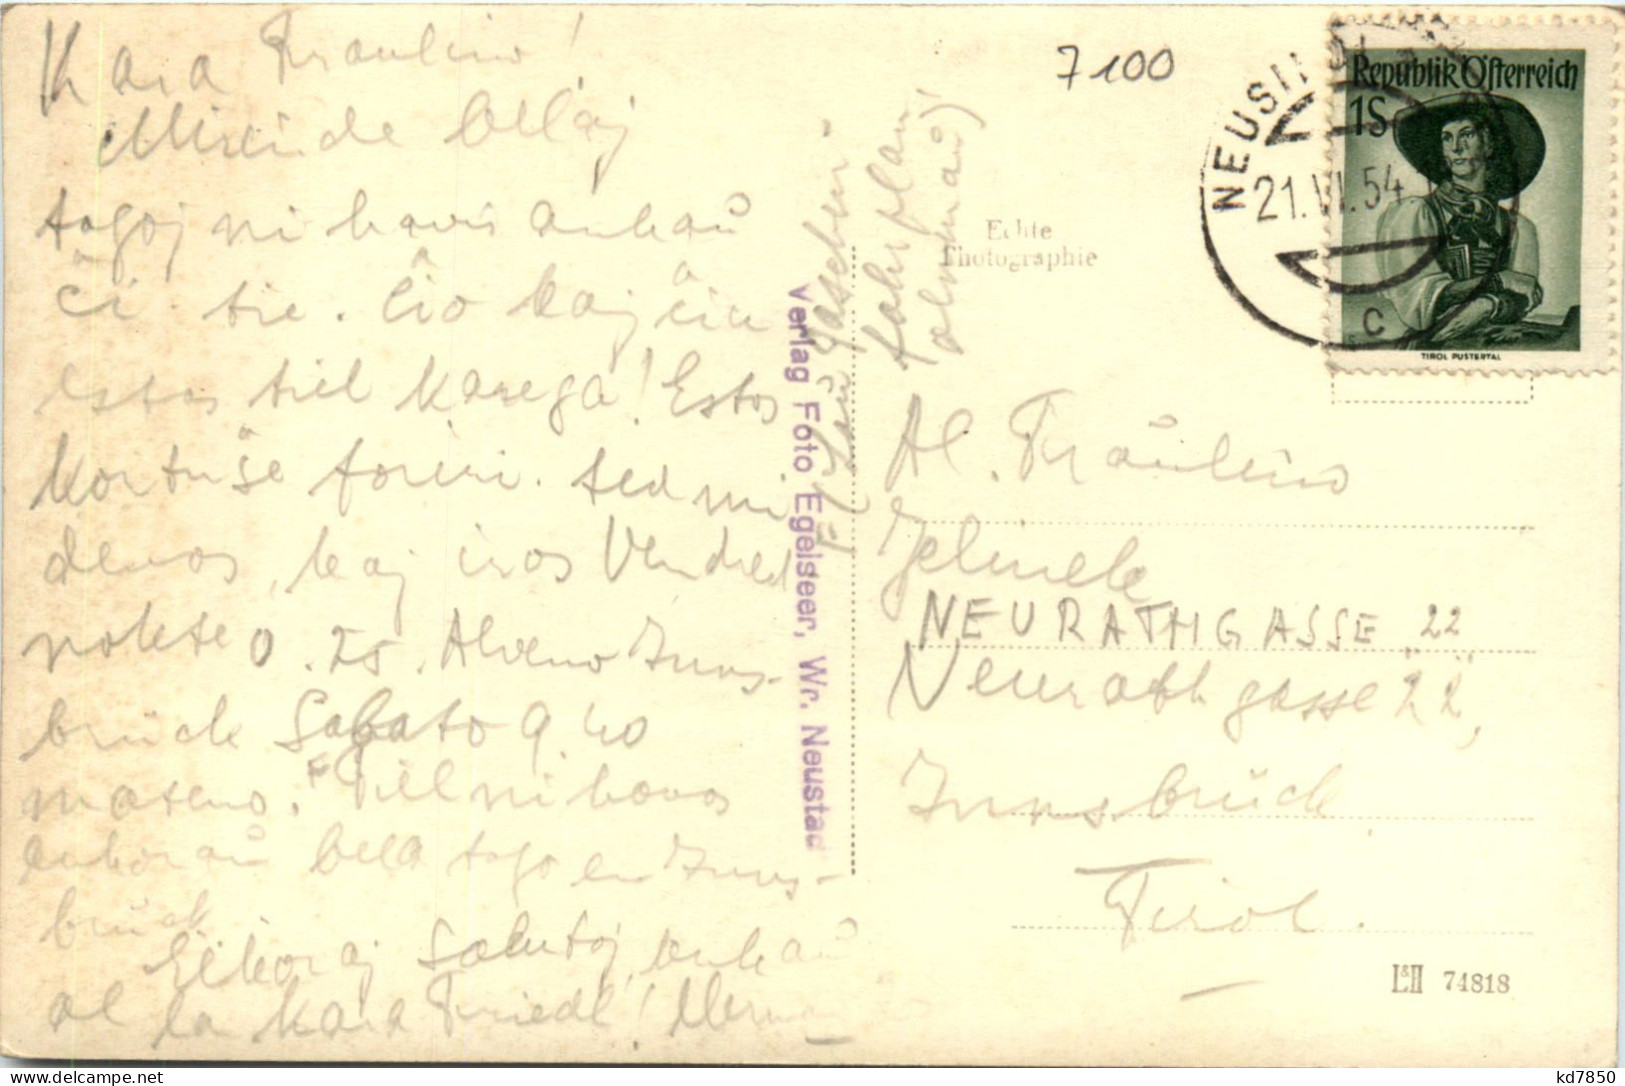 Kara Fraulino!
Mirinde belaj
tagoj ni havis ankaŭ
ĉi tie. Ĉio kaj ĉiu
estas tiel karega! Estos
kortuŝe foriri. sed mi
devos, kaj iros Vendred
nokte 0.25. Alveno Inns-
brück Sabato 9.40
mateno. Tiel ni havos
ankoraŭ bela tago en Inns-
brück
Elkoraj Salutoj, ankaŭ
al la kara Friedl!
Fahrplan
7100
Republik Österreich
1S
TIROL PUSTERTAL
21.VI.54
C
Echte
Photographie
Verlag Foto Egelseer, Wr. Neustad
Al. Fräulino
Jelinek
NEURATHGASSE 22
Neurathgasse 22,
Innsbrück
Tirol.
L&H 74818
kd7850